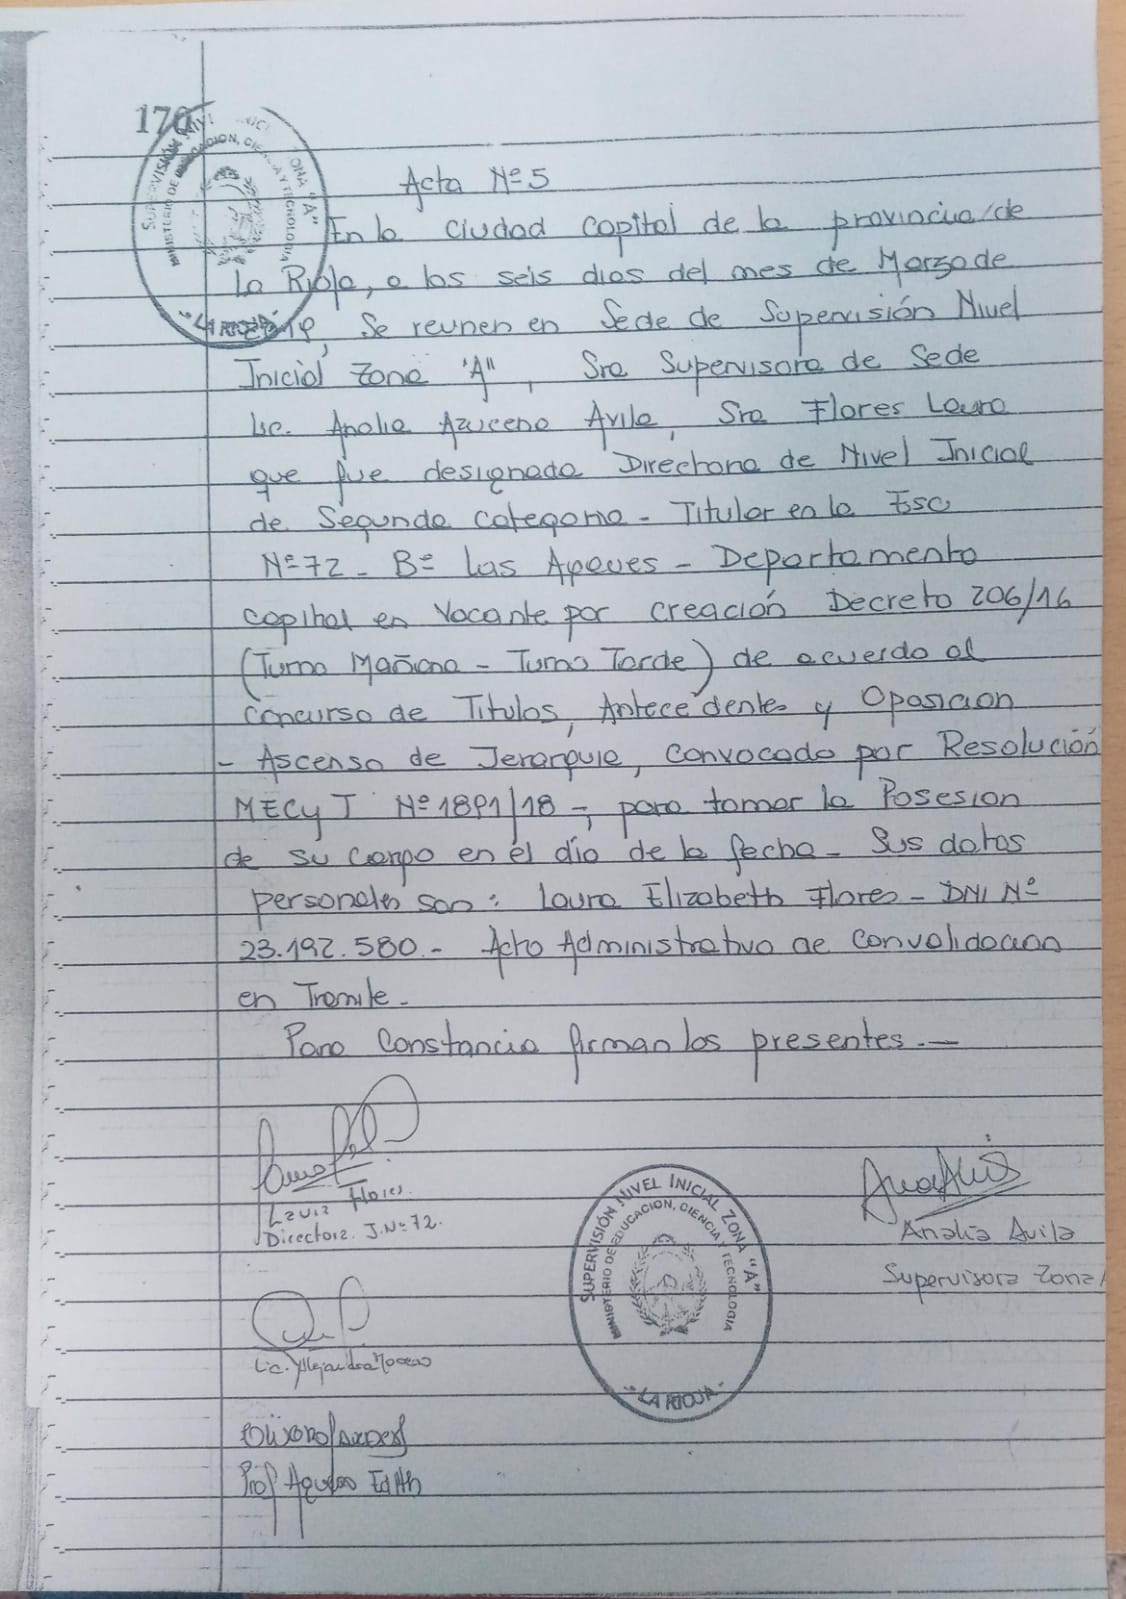 170
SUPERVISIÓN NIVEL INICIAL ZONA "A"
MINISTERIO DE EDUCACION, CIENCIA Y TECNOLOGIA
- LA RIOJA -
Acta Nº 5
En la ciudad Capital de la provincia de
La Rioja, a los seis dias del mes de Marzo de
2019, Se reunen en Sede de Supervisión Nivel
Inicial Zona "A", Sra Supervisora de Sede
Lic. Analia Azucena Avila, Sra Flores Laura
que fue designada Directora de Nivel Inicial
de Segunda Categoria - Titular en la Esc
Nº 72 - Bº Las Agaves - Departamento
Capital en Vacante por Creación Decreto 206/16
(Turno Mañana - Turno Tarde) de acuerdo al
Concurso de Titulos, Antecedentes y Oposicion
- Ascenso de Jerarquia, Convocado por Resolución
MECyT Nº 1891/18 -, para tomar la Posesion
de su cargo en el día de la fecha - Sus datos
personales son: Laura Elizabeth Flores - DNI Nº
23.192.580 - Acto Administrativo de Convalidacion
en Tramite -
Para Constancia firman los presentes. —
Laura Flores
Directora J.Nº 72.
Analia Avila
Supervisora Zonal
SUPERVISIÓN NIVEL INICIAL ZONA "A"
MINISTERIO DE EDUCACION, CIENCIA Y TECNOLOGIA
- LA RIOJA -
Lic. Alejandra Moreno
Prof Edith